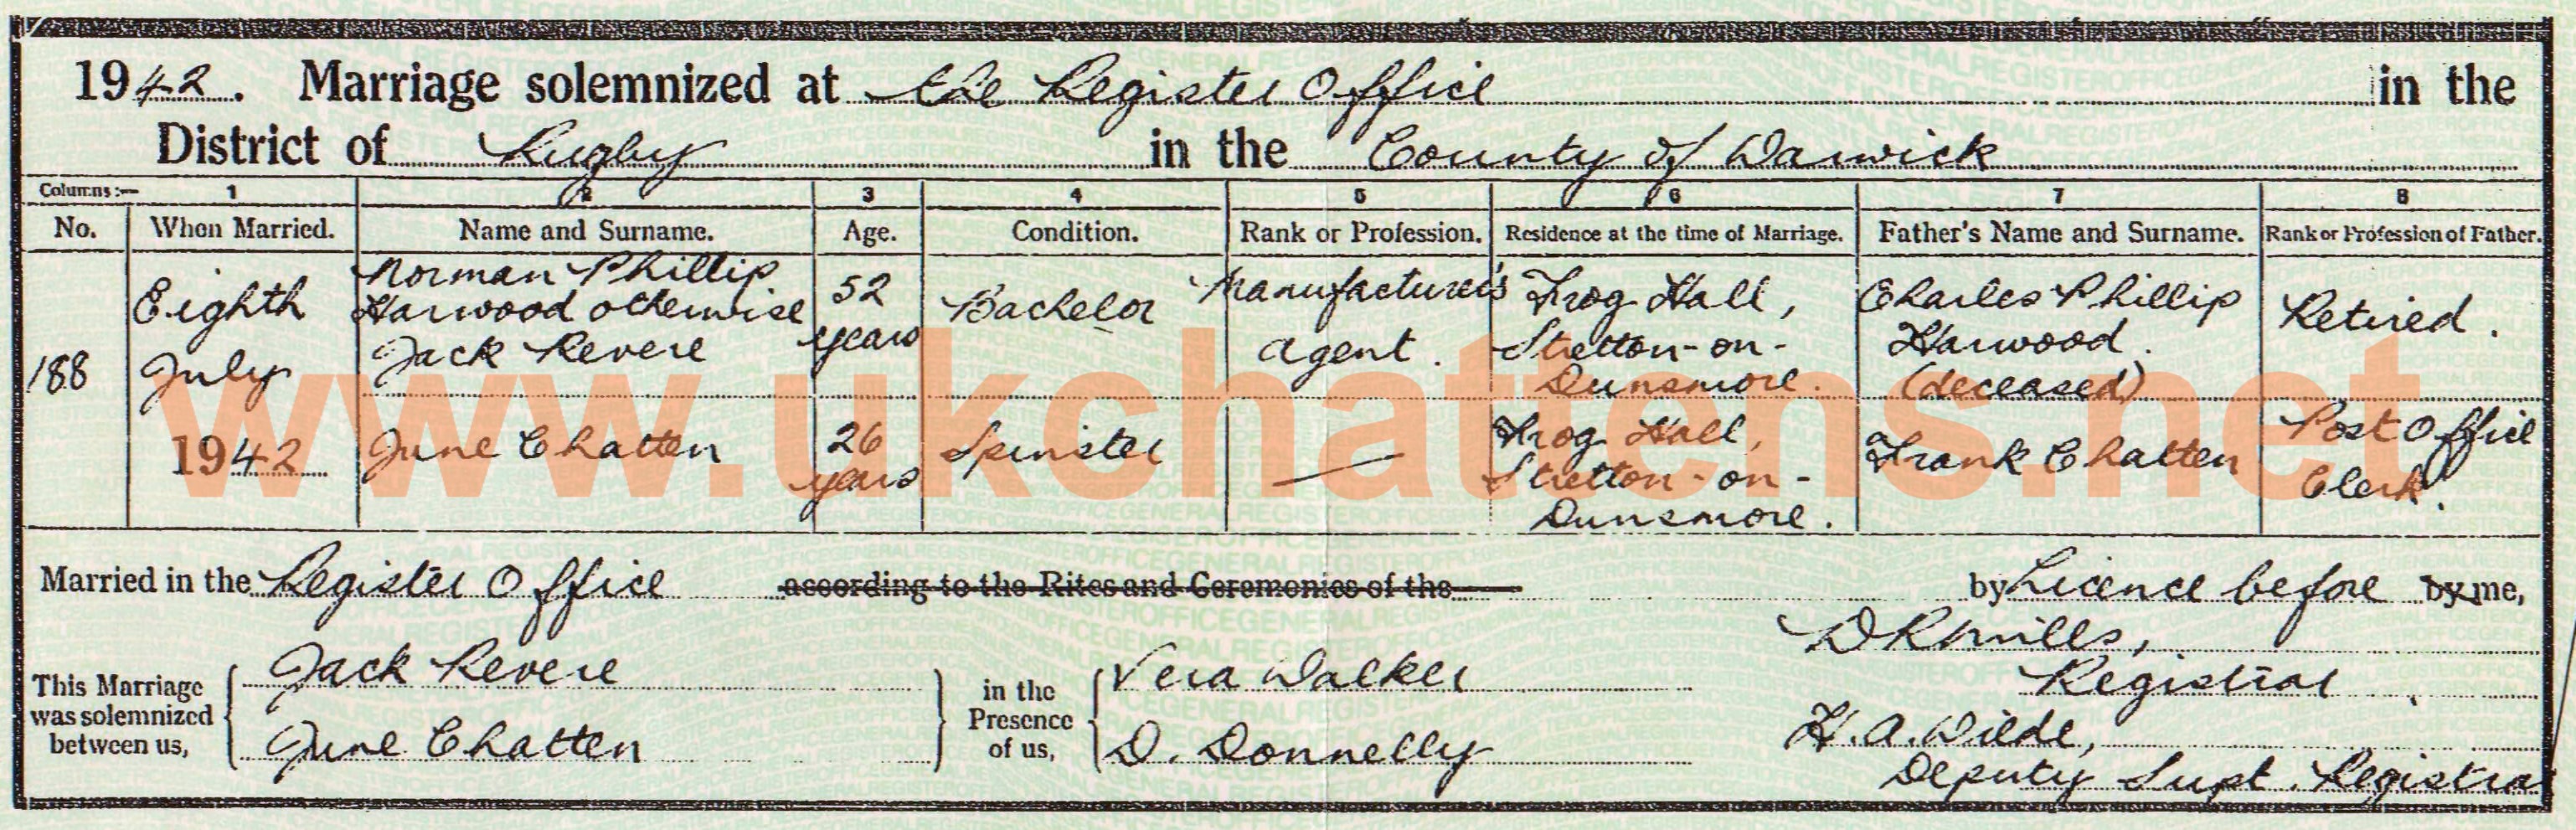 1942. Marriage solemnized at the Register Office in the
District of Rugby in the County of Warwick
Columns:— 1 2 3 4 5 6 7 8
No. When Married. Name and Surname. Age. Condition. Rank or Profession. Residence at the time of Marriage. Father's Name and Surname. Rank or Profession of Father.
188 Eighth July 1942
Norman Phillip
Harwood otherwise
Jack Revere
52
years
Bachelor
Manufacturer's
agent.
Frog Hall,
Stretton-on-
Dunsmore.
Charles Phillip
Harwood.
(deceased)
Retired.
June Chatten
26
years
Spinster
—
Frog Hall,
Stretton-on-
Dunsmore.
Frank Chatten
Post Office
Clerk.
www.ukchattens.net
Married in the Register Office according to the Rites and Ceremonies of the by Licence before by me,
This Marriage
was solemnized
between us,
Jack Revere
June Chatten
in the
Presence
of us,
Vera Walker
D. Donnelly
D R Mills,
Registrar
H. A. Wilde,
Deputy Supt. Registra